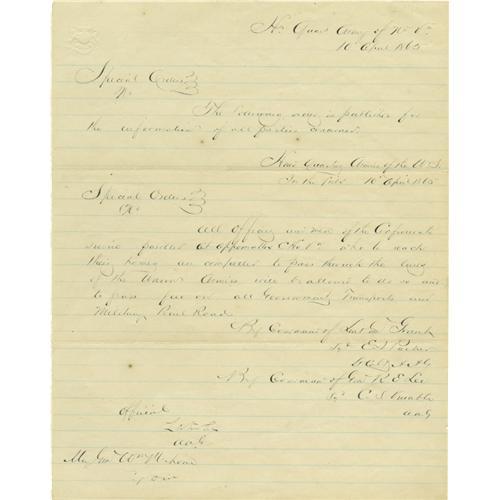 Hd Quar Army of N. Va.
10 April 1865
Special Orders
No
The following order is published for
the information of all parties concerned.
Head Quarters Armies of the U.S.
In the Field 10 April 1865
Special Orders
All Officers and men of the Confederate
service paroled at Appomattox C. Ho. Va. who to reach
their homes are compelled to pass through the lines
of the Union Armies will be allowed to do so and
to pass free on all Government Transports and
Military Rail Road
By Command of Lieut Gen Grant
Sgd E. S. Parker
A A G
By Command of Gen. R E Lee
Sgd C. S. Venable
A A G
Official
A A G
Maj Gen Wm Mahone